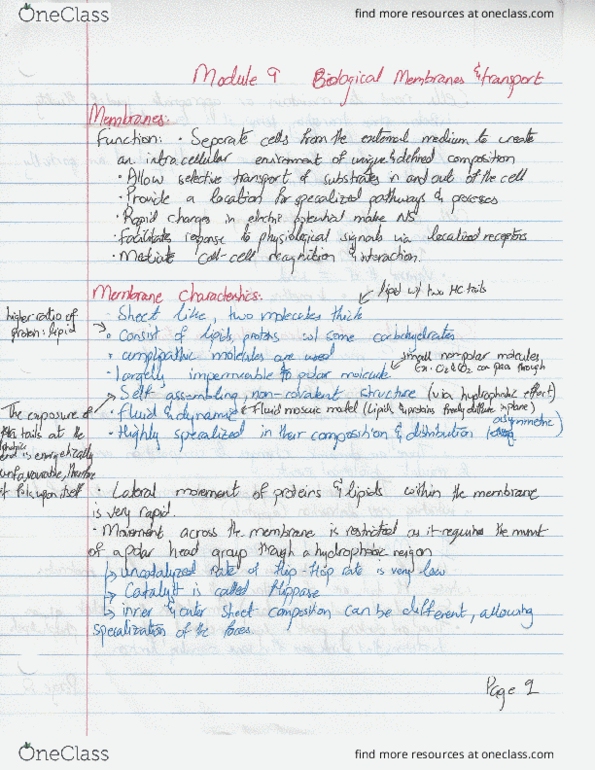 OneClass
find more resources at oneclass.com
Module 9 Biological Membranes & transport
Membranes:
Function: · Seperate cells from the external medium to create
an intracellular environment of unique & defined composition
· Allow selective transport of substrates in and out of the cell
· Provide a location for specialized pathways & processes
· Rapid changes in electric potential make NS
· facilitate response to physiological signals via localized receptors
· Mediate cell-cell recognition & interaction.
Membrane characteristics:
lipid w/ two HC tails
· Sheet like, two molecules thick
higher ratio of
protein: lipid
· Consist of lipids, proteins w/ some carbohydrates
· amphipathic molecules are used
small nonpolar molecules,
ex. O2 & CO2 can pass through
· Largely impermeable to polar molecule
· Self-assembling, non-covalent structure (via hydrophobic effect)
· Fluid & dynamic Fluid mosaic model (Lipids & proteins freely diffuse in plane)
· Highly specialized in their composition & distribution (asymmetric)
The exposure of
tails at the
end is energetically
unfavourable, therefore
it folds upon itself
· Lateral movement of proteins & lipids within the membrane
is very rapid.
· Movement across the membrane is restricted as it requires the mvmt
of a polar head group through a hydrophobic reigon
↳ uncatalyzed rate of flip-flop rate is very low
↳ Catalyst is called flippase
↳ inner & outer sheet composition can be different, allowing
specialization of the faces.
Page 1
OneClass
find more resources at oneclass.com